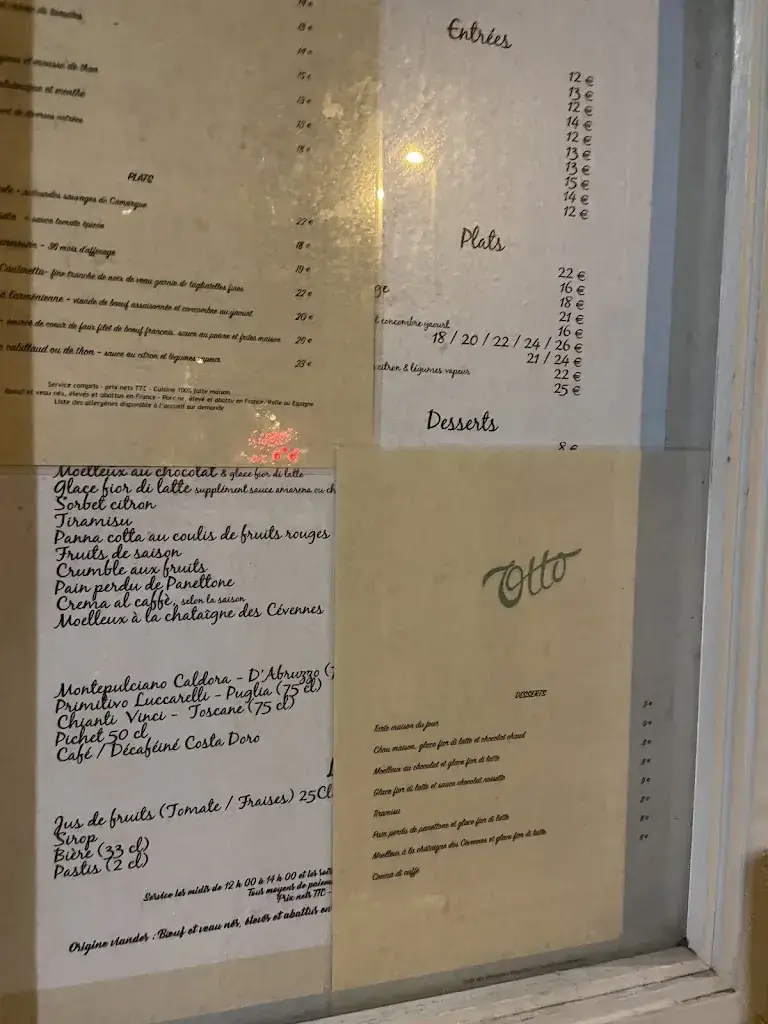 14 €
13 €
14 €
et mousse de thon
15 €
et menthe
13 €
13 €
18 €
PLATS
sauvages de Camargue
sauce tomate épicée
22 €
- 36 mois d'affinage
18 €
fine tranche de noix de veau garnie de tagliatelles fines
19 €
- viande de bœuf assaisonnée et concombre au yaourt
22 €
de cœur de faux filet de bœuf français, sauce au poivre et frites maison
20 €
cabillaud ou de thon - sauce au citron et légumes vapeur
26 €
23 €
Service compris - prix nets TTC - Cuisine 100% faite maison
Bœuf et veau nés, élevés et abattus en France - Porc né, élevé et abattu en France, Italie ou Espagne
Liste des allergènes disponible à l'accueil sur demande
Entrées
12 €
13 €
12 €
14 €
12 €
13 €
13 €
15 €
14 €
12 €
Plats
22 €
ge 16 €
18 €
21 €
concombre yaourt 16 €
18 / 20 / 22 / 24 / 26 €
21 / 24 €
citron & légumes vapeur 22 €
25 €
Desserts
8 €
Moelleux au chocolat & glace fior di latte
Glace fior di latte supplément sauce amarena ou ch
Sorbet citron
Tiramisu
Panna cotta au coulis de fruits rouges
Fruits de saison
Crumble aux fruits
Pain perdu de Panettone
Crema al caffè, selon la saison
Moelleux à la chataîgne des Cévennes
Montepulciano Caldora - D'Abruzzo (7
Primitivo Luccarelli - Puglia (75 cl)
Chianti Vinci - Toscane (75 cl)
Pichet 50 cl
Café / Décaféiné Costa Doro
Jus de fruits (Tomate / Fraises) 25Cl
Sirop
Bière (33 cl)
Pastis (2 cl)
Service les midis de 12 h 00 à 14 h 00 et les soi
Tous moyens de paiem
Prix nets TTC -
Origine viandes : Bœuf et veau nés, élevés et abattus en
Otto
DESSERTS
Tarte maison du jour
Chou maison, glace fior di latte et chocolat chaud
Moelleux au chocolat et glace fior di latte
Glace fior di latte et sauce chocolat noisette
Tiramisu
Pain perdu de panettone et glace fior di latte
Moelleux à la châtaigne des Cévennes et glace fior di latte
Crema di caffè